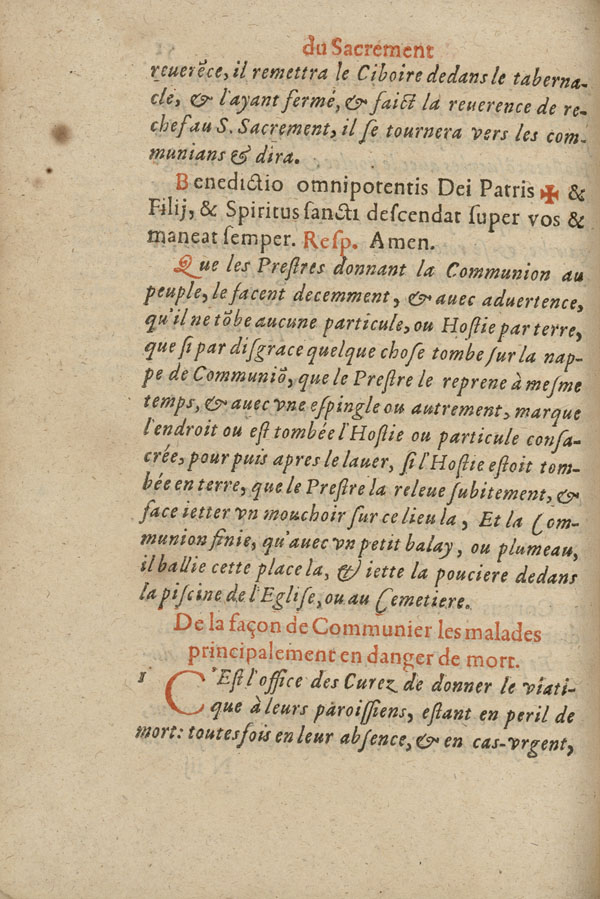 du Sacrement
reuerẽce, il remettra le Ciboire dedans le taberna-
cle, & l'ayant fermé, & faict la reuerence de re-
chef au S. Sacrement, il ſe tournera vers les com-
munians & dira.
Benedictio omnipotentis Dei Patris ✠ &
Filij, & Spiritus ſancti deſcendat ſuper vos &
maneat ſemper. Reſp. Amen.
Que les Preſtres donnant la Communion au
peuple, le facent decemment, & auec aduertence,
qu'il ne tõbe aucune particule, ou Hoſtie par terre,
que ſi par diſgrace quelque choſe tombe ſur la nap-
pe de Communiõ, que le Preſtre le reprene à meſme
temps, & auec vne eſpingle ou autrement, marque
l'endroit ou eſt tombée l'Hoſtie ou particule conſa-
crée, pour puis apres le lauer, ſi l'Hoſtie eſtoit tom-
bée en terre, que le Preſtre la releue ſubitement, &
face ietter vn mouchoir ſur ce lieu la, Et la Com-
munion finie, qu'auec vn petit balay, ou plumeau,
il ballie cette place la, & iette la pouciere dedans
la piſcine de l'Egliſe, ou au Cemetiere.
De la façon de Communier les malades
principalement en danger de mort.
1 C'Eſt l'office des Curez de donner le viati-
que à leurs paroiſſiens, eſtant en peril de
mort: toutesfois en leur abſence, & en cas-vrgent,